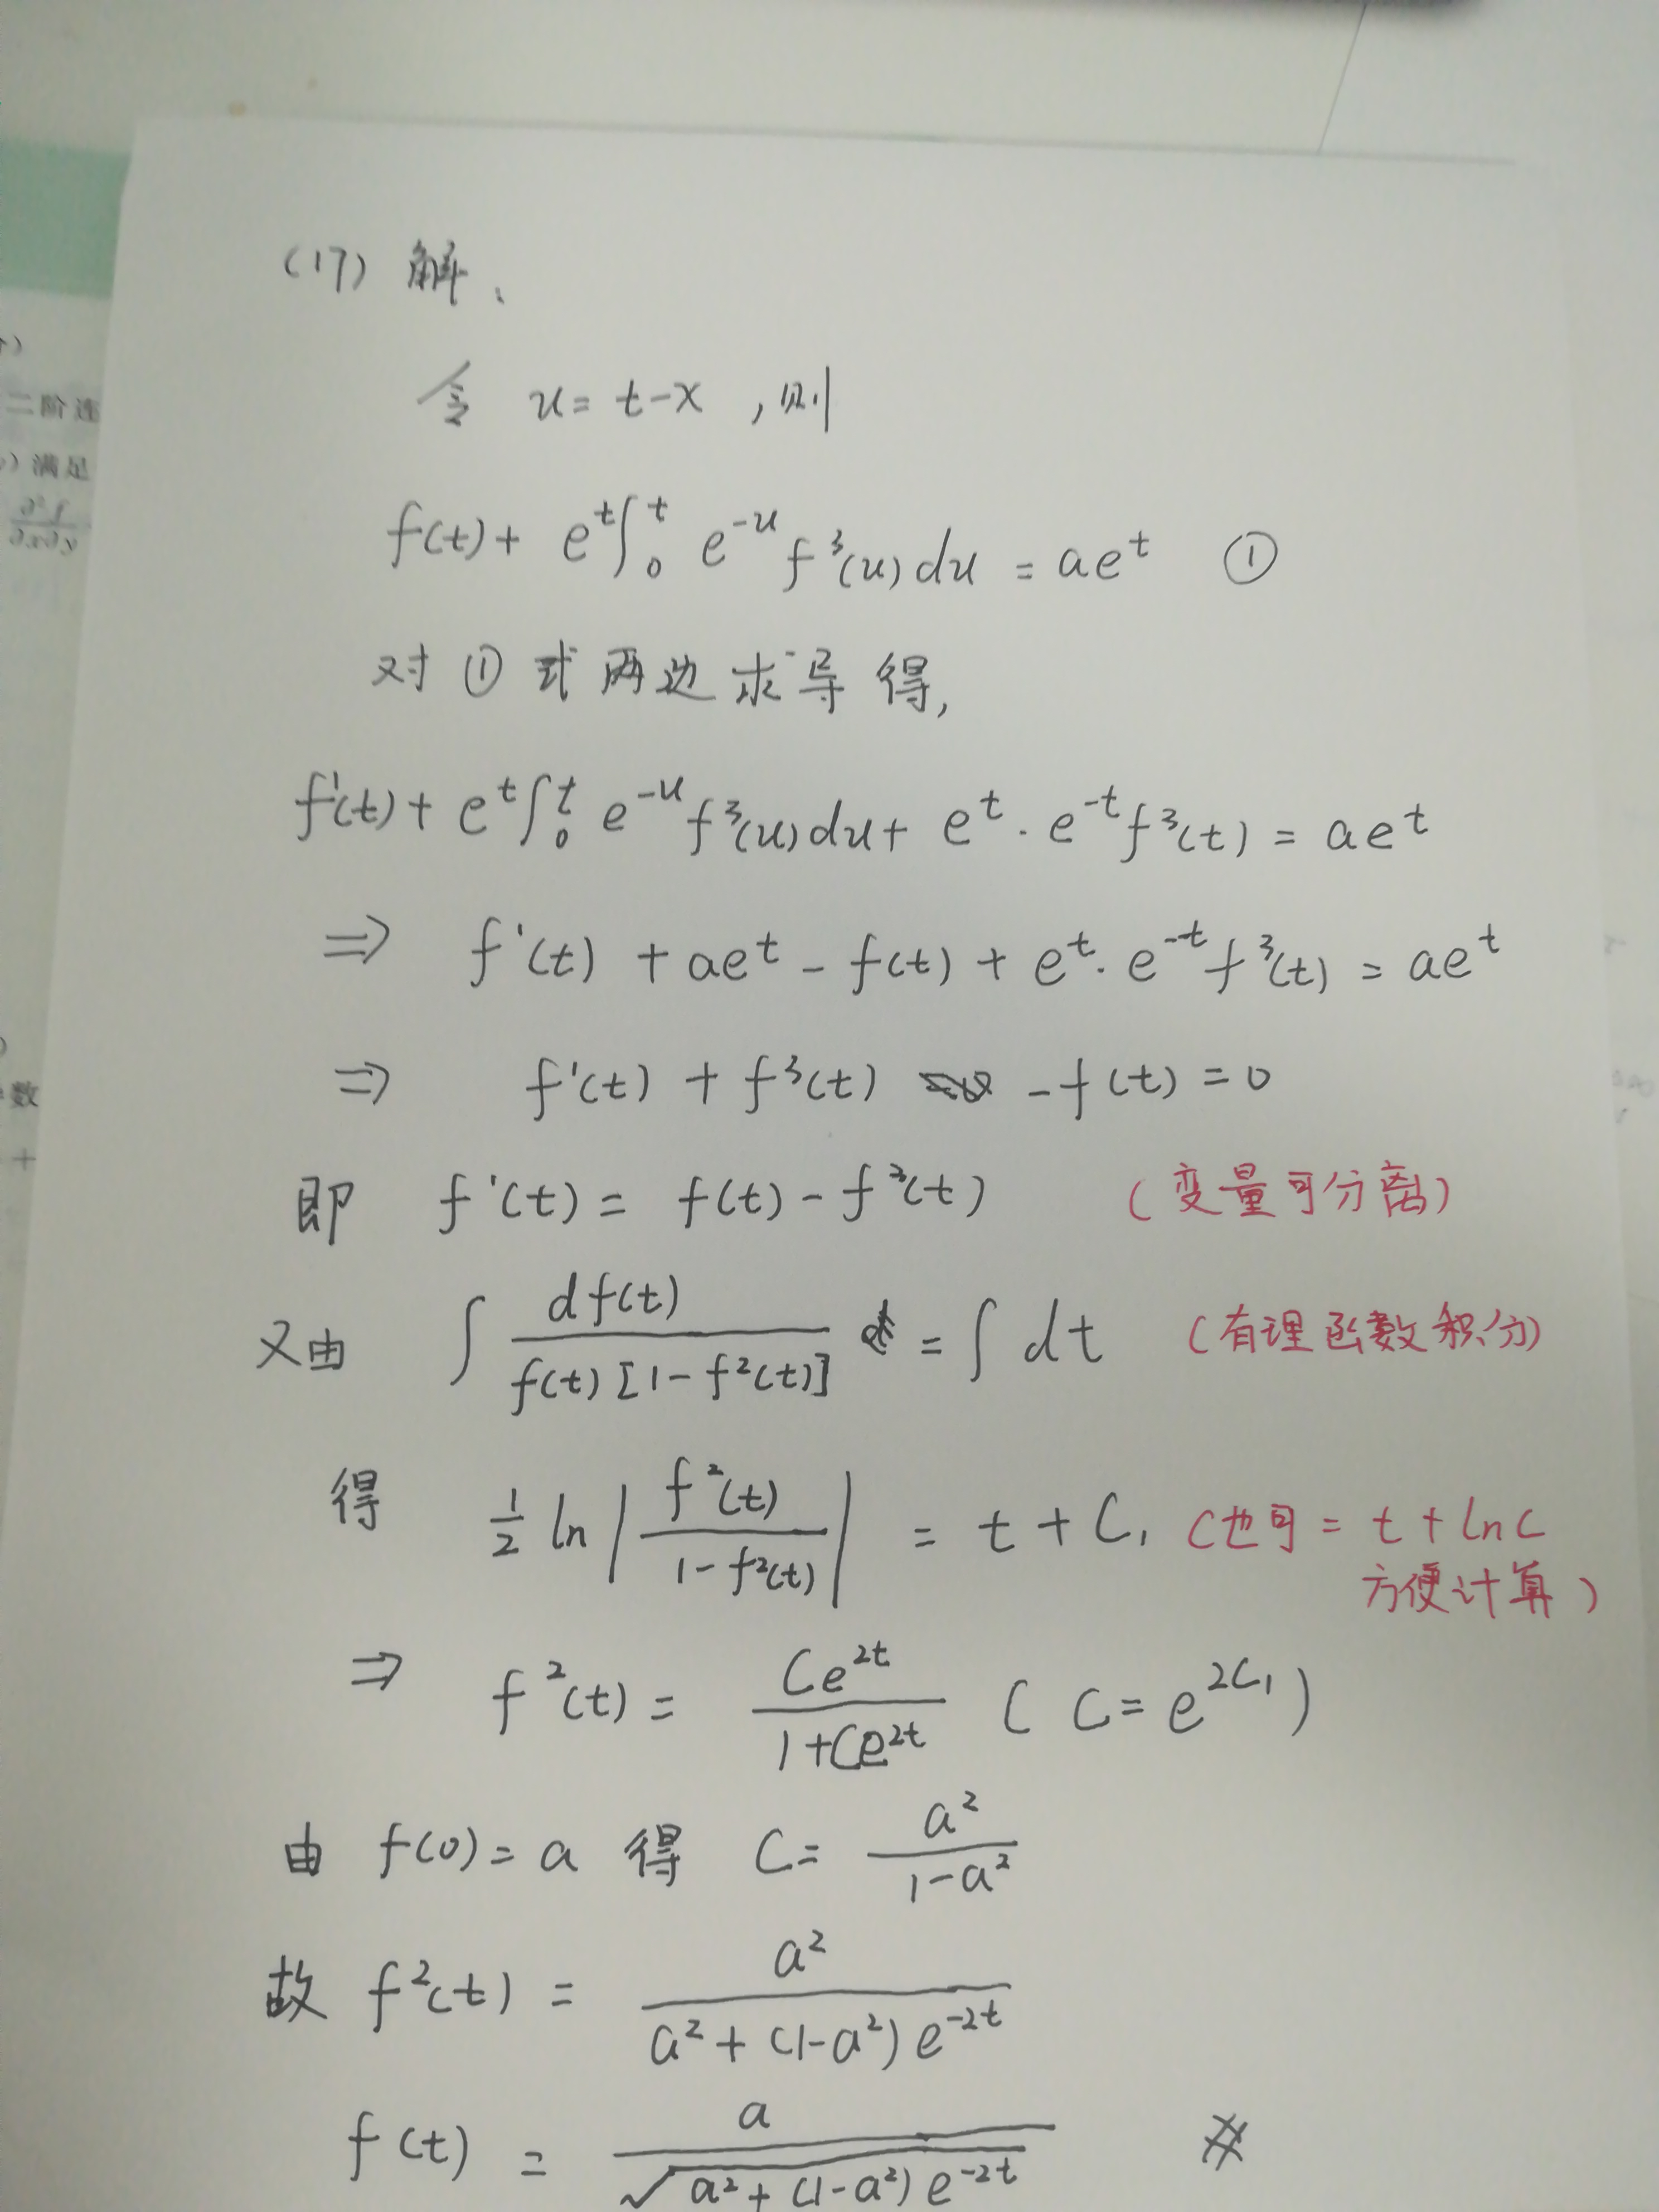 (17) 解、
令 u = t-x , 则
f(t) + e^t ∫_0^t e^{-u} f^3(u) du = ae^t ①
对 ① 式 两 边 求 导 得,
f'(t) + e^t ∫_0^t e^{-u} f^3(u) du + e^t · e^{-t} f^3(t) = ae^t
⇒ f'(t) + ae^t - f(t) + e^t · e^{-t} f^3(t) = ae^t
⇒ f'(t) + f^3(t) - f(t) = 0
即 f'(t) = f(t) - f^3(t) (变量可分离)
又由 ∫ \frac{df(t)}{f(t)[1-f^2(t)]} = ∫ dt (有理函数积分)
得 \frac{1}{2} ln | \frac{f^2(t)}{1-f^2(t)} | = t + C_1 (也可 = t + lnC
方便计算)
⇒ f^2(t) = \frac{Ce^{2t}}{1+Ce^{2t}} ( C = e^{2C_1} )
由 f(0) = a 得 C = \frac{a^2}{1-a^2}
故 f^2(t) = \frac{a^2}{a^2+(1-a^2)e^{-2t}}
f(t) = \frac{a}{\sqrt{a^2+(1-a^2)e^{-2t}}} #
二阶连
) 满足
\frac{∂^2f}{∂x∂y}
数
+